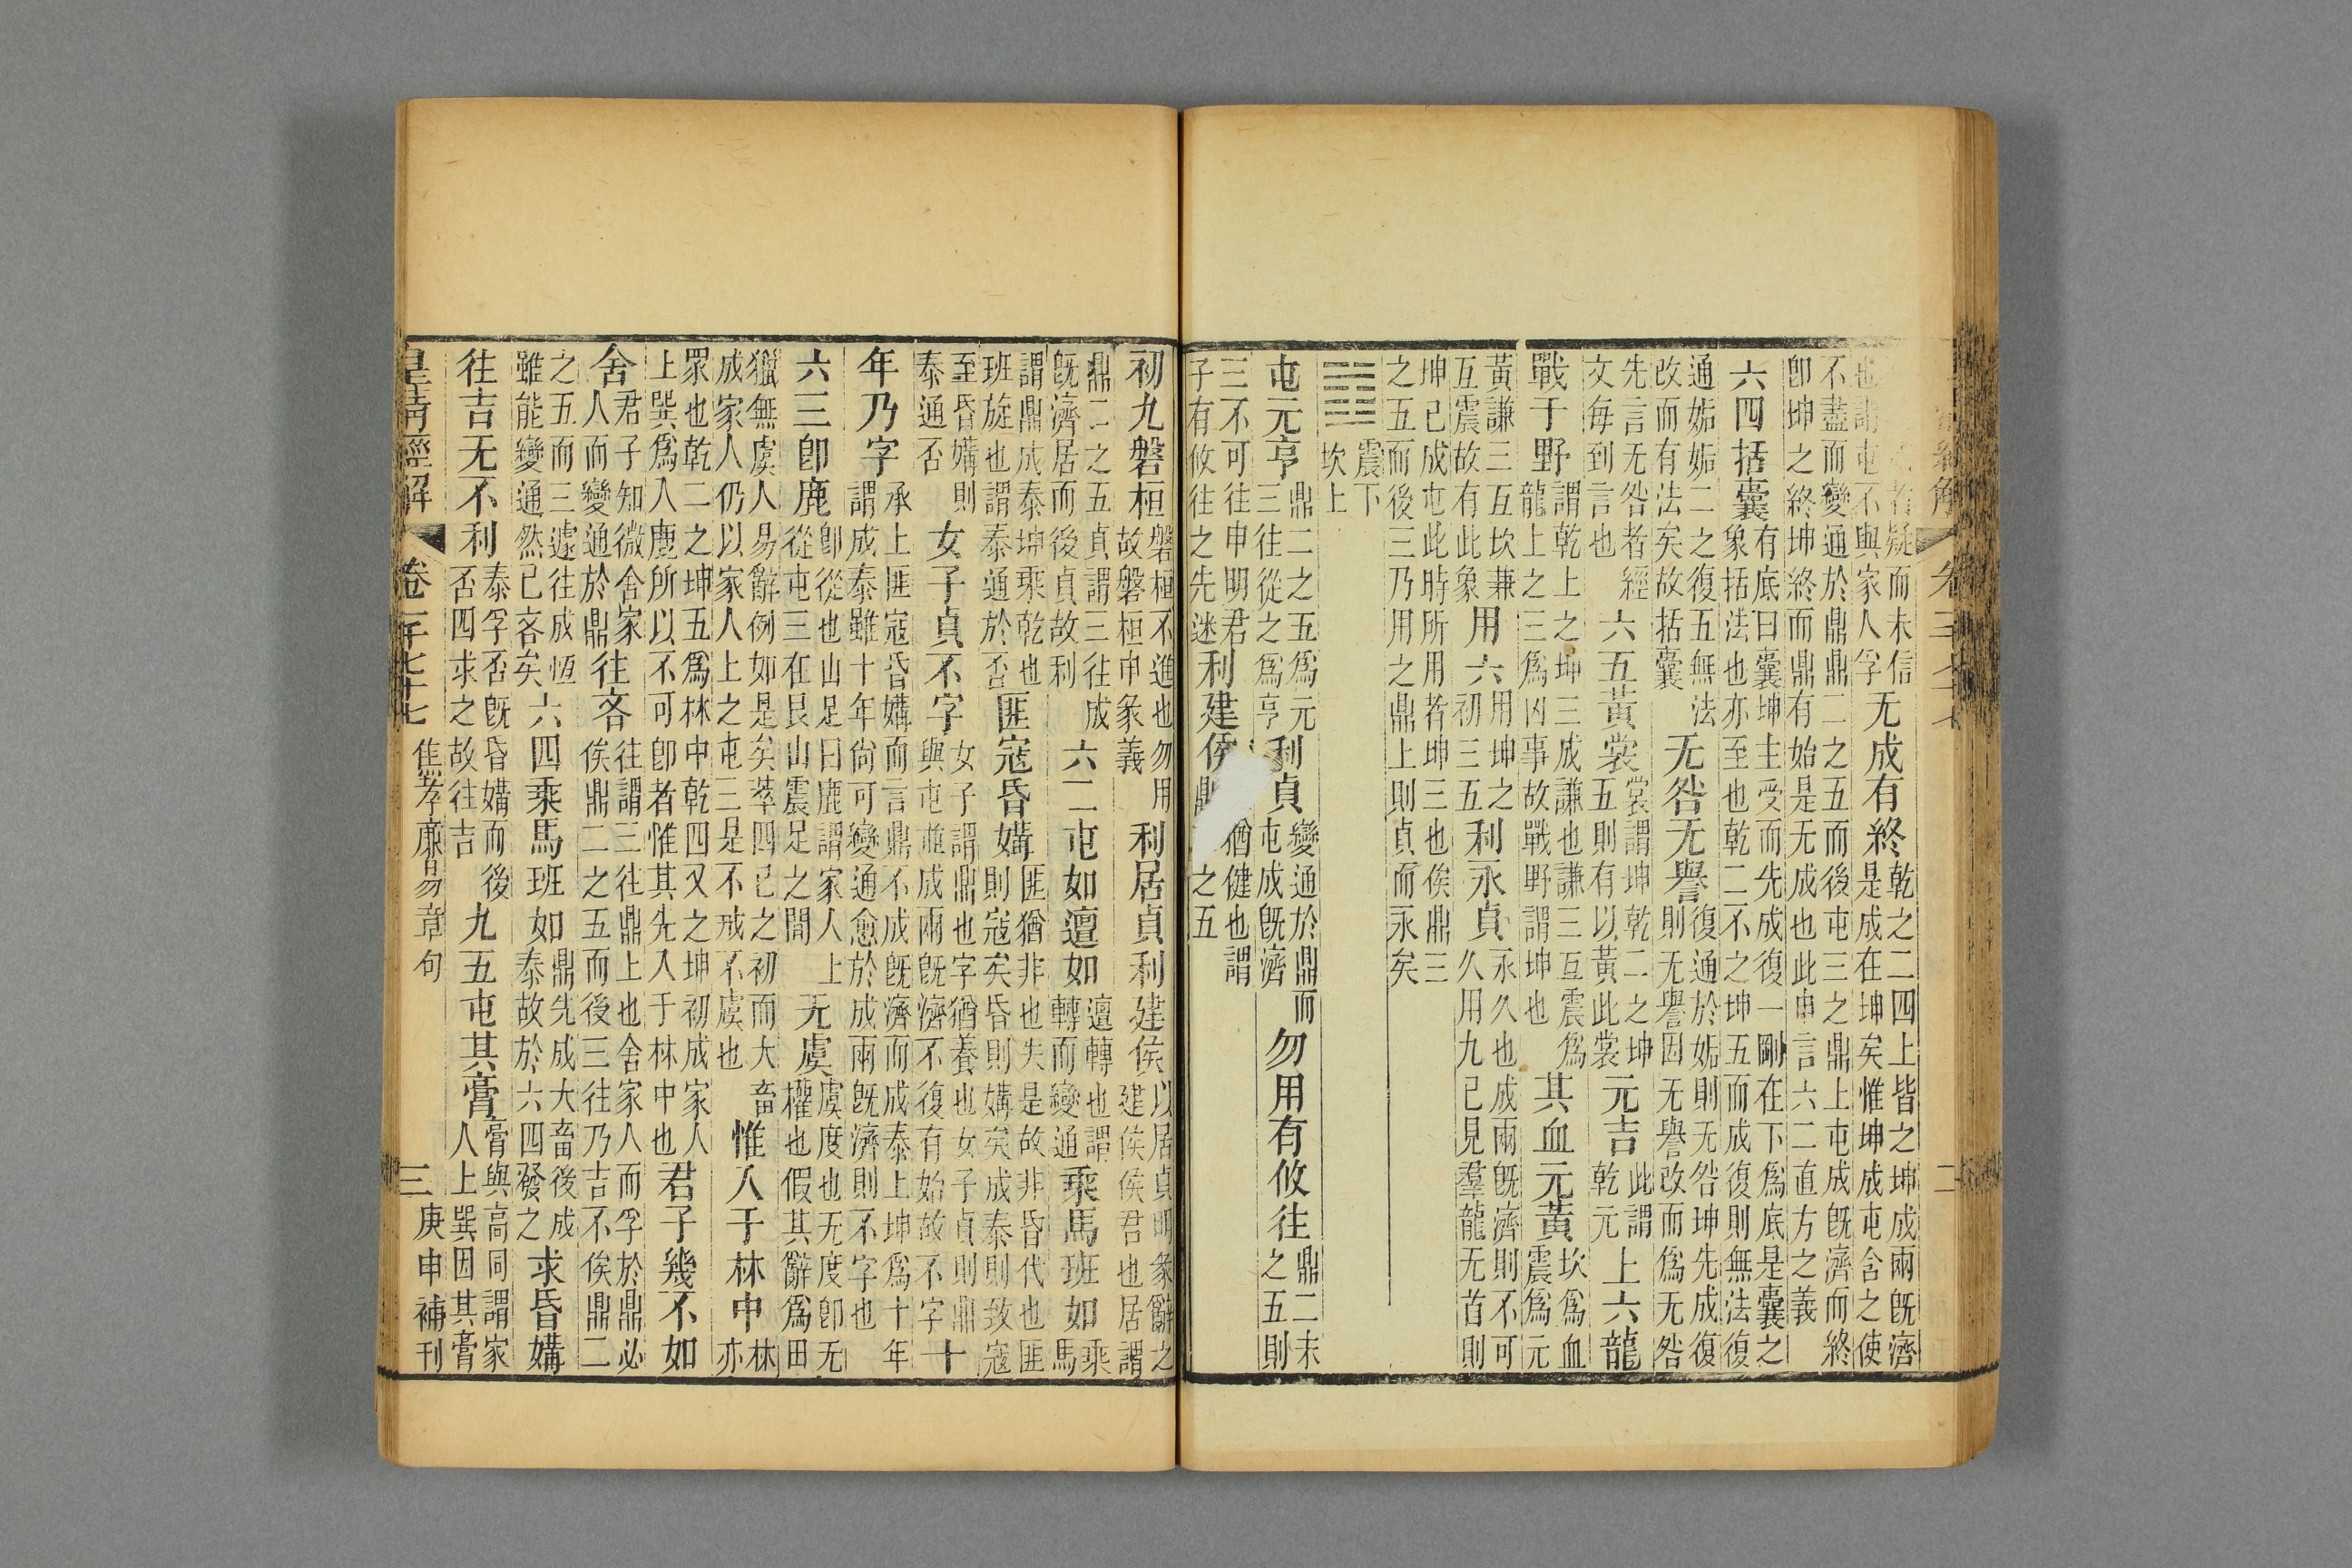 者疑而未信
也謂屯不與家人孚
无成有終
乾之二四上皆之坤成兩既濟
是成在坤矣惟坤成屯含之使
不盡而變通於鼎鼎二之五而後屯三之鼎上屯成既濟而終
卽坤之終坤終而鼎有始是无成也此申言六二直方之義
六四括囊
有底曰囊坤主受而先成復一剛在下爲底是囊之
象括法也亦至也乾二不之坤五而成復則無法復
通姤姤二之復五無法
改而有法矣故括囊
无咎无譽
復通於姤則无咎坤先成復
則无譽因无譽改而爲无咎
先言无咎者經
文每到言也
六五黃裳
裳謂坤乾二之坤
五則有以黃此裳
元吉
此謂
乾元
上六龍
戰于野
謂乾上之坤三成謙也謙三互震爲
龍上之三爲凶事故戰野謂坤也
其血元黃
坎爲血
震爲元
黃謙三互坎兼
互震故有此象
用六
用坤之
初三五
利永貞
永久也成兩既濟則不可
久用九已見羣龍无首則
坤已成屯此時所用者坤三也俟鼎三
之五而後三乃用之鼎上則貞而永矣
䷂
震下
坎上
屯元亨
鼎二之五爲元
三往從之爲亨
利貞
變通於鼎而
屯成既濟
勿用有攸往
鼎二未
之五則
三不可往申明君
子有攸往之先迷
利建侯
猶健也謂
鼎之五
初九磐桓
磐桓不進也勿用
故磐桓申彖義
利居貞利建侯
以居貞明彖辭之
建侯侯君也居謂
鼎二之五貞謂三往成
既濟居而後貞故利
六二屯如邅如
邅轉也謂
轉而變通
乘馬班如
乘
馬
謂鼎成泰坤乘乾也
班旋也謂泰通於否
匪寇昏媾
匪猶非也失是故非昏代也匪
則寇矣昏則媾矣成泰則致寇
至昏媾則
泰通否
女子貞不字
女子謂鼎也字猶養也女子貞則鼎
與屯並成兩既濟不復有始故不字
十
年乃字
承上匪寇昏媾而言鼎不成既濟而成泰上坤爲十年
謂成泰雖十年尙可變通愈於成兩既濟則不字也
六三卽鹿
卽從也山足曰鹿謂家人上
從屯三在艮山震足之間
无虞
虞度也无度卽无
欋也假其辭爲田
獵無虞人易辭例如是矣萃四已之初而大畜
成家人仍以家人上之屯三是不戒不虞也
惟入于林中
林
亦
眾也乾二之坤五爲林中乾四又之坤初成家人
上巽爲入鹿所以不可卽者惟其先入于林中也
君子幾不如
舍
君子知微舍家
人而變通於鼎
往吝
往謂三往鼎上也舍家人而孚於鼎必
俟鼎二之五而後三往乃吉不俟鼎二
之五而三遽往成恆
雖能變通然已吝矣
六四乘馬班如
鼎先成大畜後成
泰故於六四發之
求昏媾
往吉无不利
泰孚否既昏媾而後
否四求之故往吉
九五屯其膏
膏與高同謂家
人上巽因其膏
皇淸經解 卷一千七十七 焦孝廉易章句 三 庚申補刊